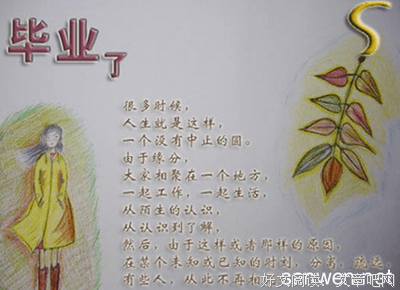 毕业了
很多时候，
人生就是这样，
一个没有中止的圆。
由于缘分，
大家相聚在一个地方，
一起工作，一起生活，
从陌生的认识，
从认识到了解，
然后，由于这样或者那样的原因，
在某个未知或已知的时刻，分离，
有些人，从此不再相
sanwen.net
好文阅读－文章吧网